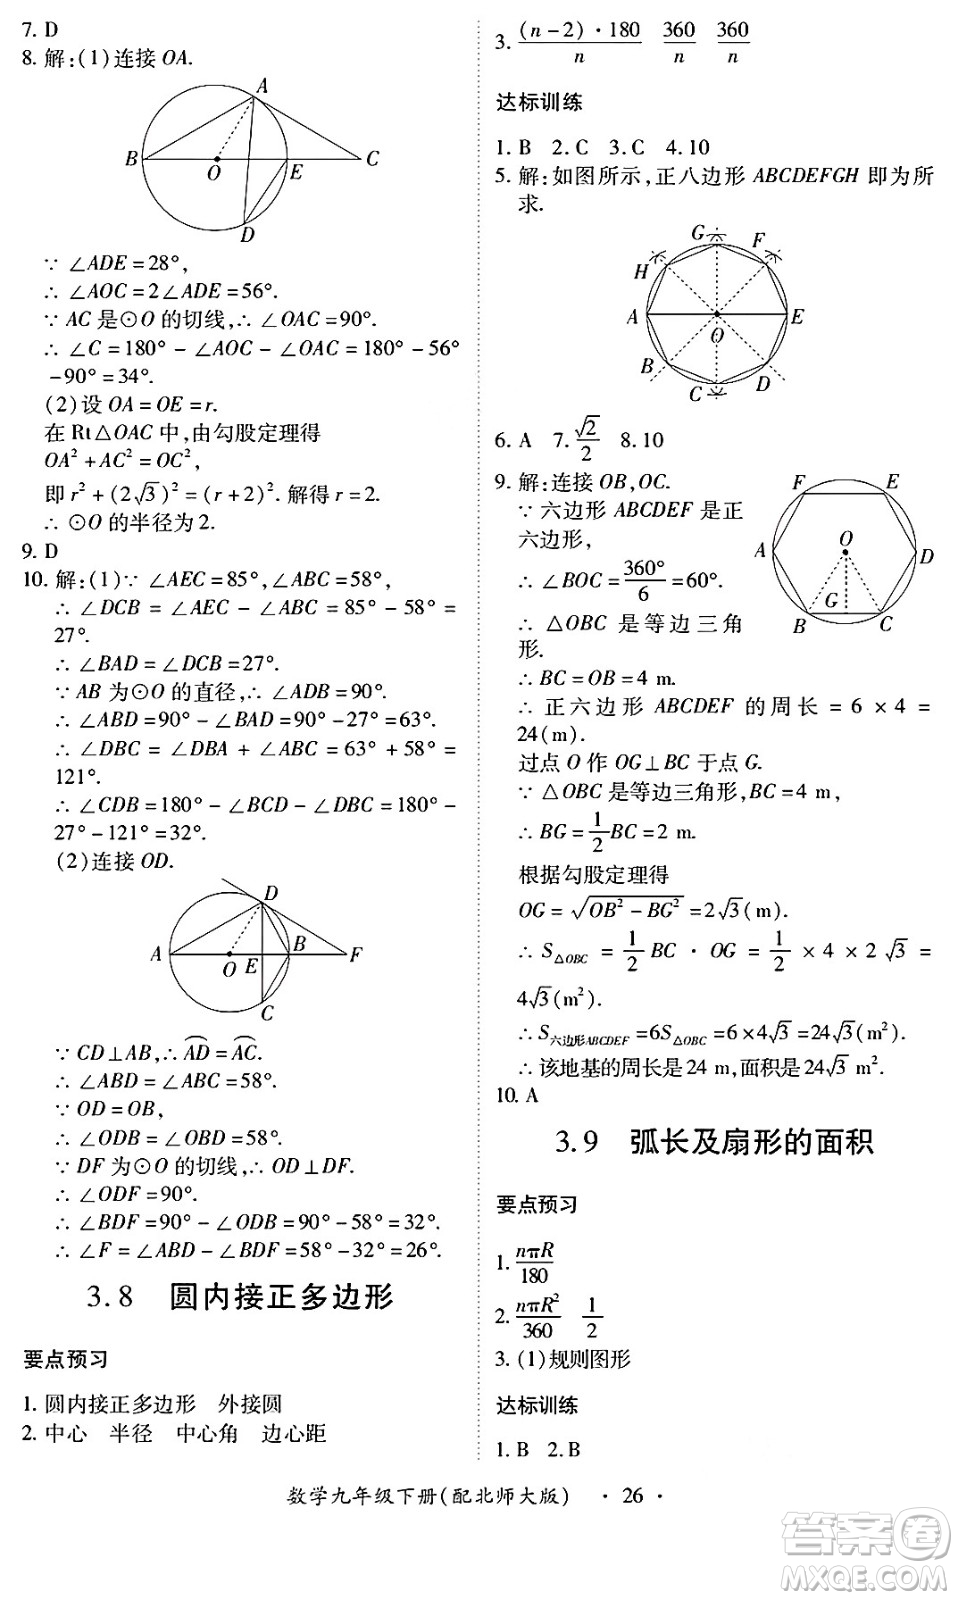 7. D
8. 解:(1)连接 OA.
A
B
O
E
C
D
∵ ∠ADE=28°,
∴ ∠AOC=2∠ADE=56°.
∵ AC 是⊙O 的切线,∴ ∠OAC=90°.
∴ ∠C=180°-∠AOC-∠OAC=180°-56°
-90°=34°.
(2)设 OA=OE=r.
在 Rt△OAC 中,由勾股定理得
OA²+AC²=OC²,
即 r²+(2√3)²=(r+2)². 解得 r=2.
∴ ⊙O 的半径为 2.
9. D
10. 解:(1)∵ ∠AEC=85°,∠ABC=58°,
∴ ∠DCB=∠AEC-∠ABC=85°-58°=
27°.
∴ ∠BAD=∠DCB=27°.
∵ AB 为⊙O 的直径,∴ ∠ADB=90°.
∴ ∠ABD=90°-∠BAD=90°-27°=63°.
∴ ∠DBC=∠DBA+∠ABC=63°+58°=
121°.
∴ ∠CDB=180°-∠BCD-∠DBC=180°-
27°-121°=32°.
(2)连接 OD.
D
A
O
E
B
F
C
∵ CD⊥AB,∴ A͡D=A͡C.
∴ ∠ABD=∠ABC=58°.
∵ OD=OB,
∴ ∠ODB=∠OBD=58°.
∵ DF 为⊙O 的切线,∴ OD⊥DF.
∴ ∠ODF=90°.
∴ ∠BDF=90°-∠ODB=90°-58°=32°.
∴ ∠F=∠ABD-∠BDF=58°-32°=26°.
3.8 圆内接正多边形
要点预习
1. 圆内接正多边形 外接圆
2. 中心 半径 中心角 边心距
3. (n-2)·180/n 360/n 360/n
达标训练
1. B 2. C 3. C 4. 10
5. 解:如图所示,正八边形 ABCDEFGH 即为所
求.
G
F
H
A
E
O
B
C
D
6. A 7. √2/2 8. 10
9. 解:连接 OB,OC.
∵ 六边形 ABCDEF 是正
六边形,
∴ ∠BOC=360°/6=60°.
∴ △OBC 是等边三角
形.
F
E
A
O
D
B
G
C
∴ BC=OB=4 m.
∴ 正六边形 ABCDEF 的周长=6×4=
24(m).
过点 O 作 OG⊥BC 于点 G.
∵ △OBC 是等边三角形,BC=4 m,
∴ BG=1/2BC=2 m.
根据勾股定理得
OG=√(OB²-BG²)=2√3(m).
∴ S△OBC=1/2 BC·OG=1/2×4×2√3=
4√3(m²).
∴ S六边形ABCDEF=6S△OBC=6×4√3=24√3(m²).
∴ 该地基的周长是 24 m,面积是 24√3 m².
10. A
3.9 弧长及扇形的面积
要点预习
1. nπR/180
2. nπR²/360 1/2
3. (1)规则图形
达标训练
1. B 2. B
数学九年级下册(配北师大版) · 26 ·
答案卷
MXQE.COM